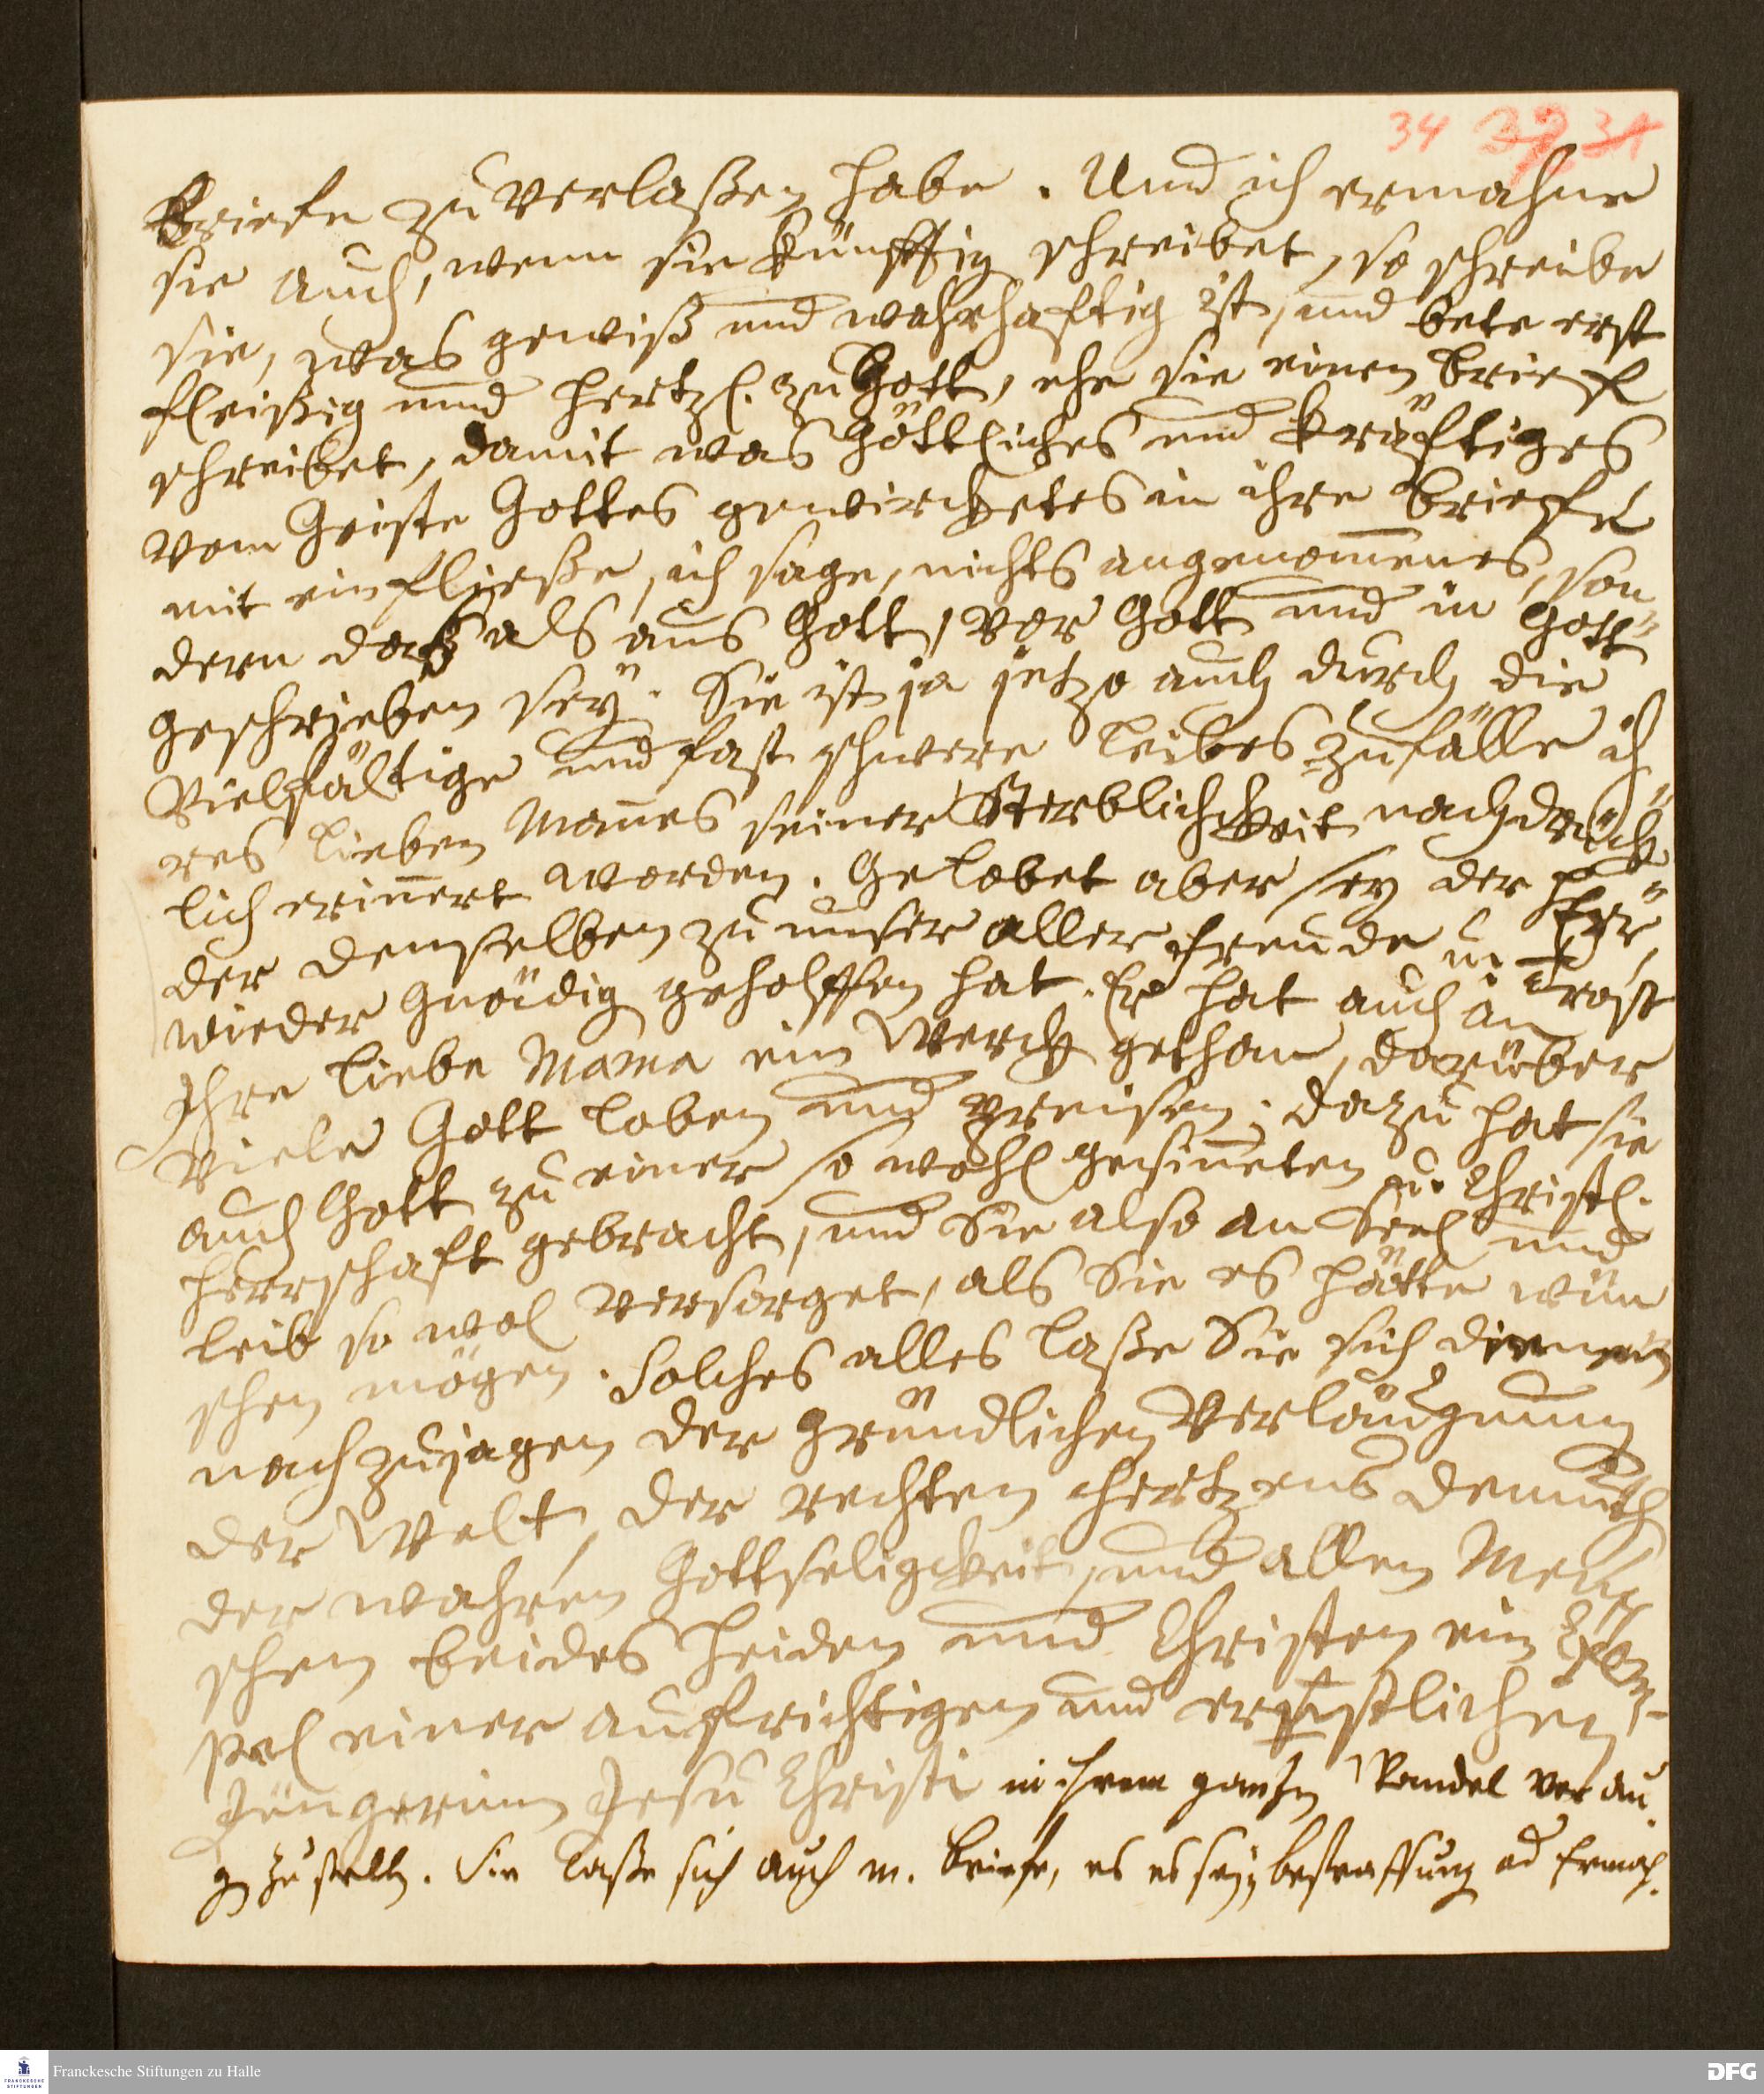 34 37 34
Briefe zu verlaßen habe. Und ich ermahne
sie auch, wenn sie künfftig schreibet, so schreibe
sie, was gewiß und wahrhafftig ist, und bete erst
fleißig und hertzl. zu Gott, ehe sie einen brieff
schreibet, damit was Göttliches und kräfftiges
vom Geiste Gottes gewircketes in ihre brieffe
mit einfließe, ich sage, nichts angenom̄enes, son-
dern daß als aus Gott, vor Gott und in Gott
geschrieben seÿ. Sie ist ja jetzo auch durch die
vielfältige und fast schwere Leibes Zufälle ih
res lieben Man̄es seiner Sterblichkeit nachdrück-
lich erin̄ert worden. Gelobet aber sey der HErr,
der demselben zu unser aller freude u. Trost
wieder gnädig geholffen hat. Er hat auch an
Ihre liebe Mama ein Werck gethan, darüber
viele Gott loben und preisen; dazu hat sie
auch Gott zu einer so wohl gesin̄eten u. Christl.
Herrschafft gebracht, und Sie also an Seel und
Leib so wol versorget, als Sie es hätte wün
schen mögen. Solches alles laße Sie sich dienen
nachzujagen der gründlichen Verläugnung
der Welt, der rechten Hertzens Demuth
der wahren Gottseligkeit, und allen Men-
schen beides Heiden und Christen ein Exem-
pel einer auffrichtigen und ernstlichen
Jüngerinn Jesu Christi in ihrem gantzen Wandel vor au-
gen zu stellen. Sie laße sich auch m. briefe, es sey bestraffung od Ermah.
Franckesche Stiftungen zu Halle
FRANCKESCHE
STIFTUNGEN
DFG